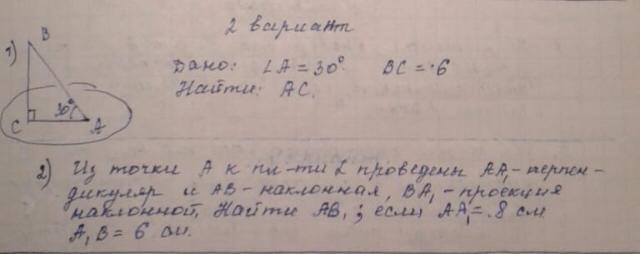 2 вариант
1)
B
Дано: ∠A = 30° BC = 6
Найти: AC.
30°
C A
2) Из точки A к пл-ти α проведены AA₁-перпен-
дикуляр и AB-наклонная, BA₁-проекция
наклонной. Найти AB, ; если AA₁ = 8 см
A₁B = 6 см.